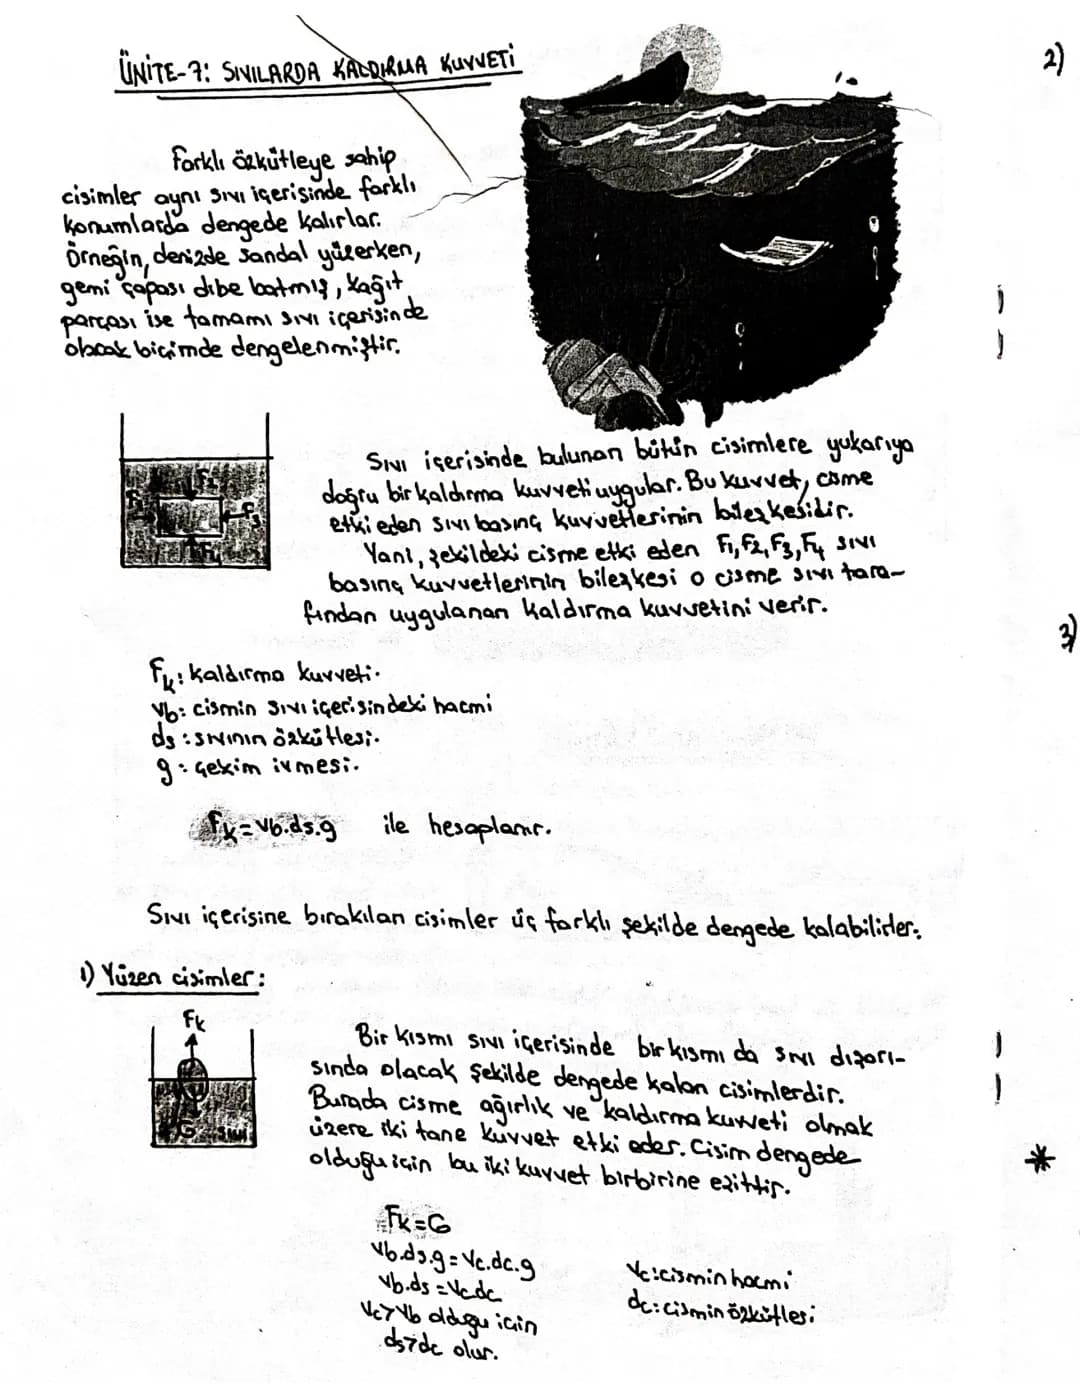 ÜNİTE-7: SIVILARDA KALDIRMA KUVVETİ
2)
Farklı özkütleye sahip
cisimler aynı sıvı içerisinde farklı
konumlarda dengede kalırlar.
Örneğin, denizde sandal yüzerken,
gemi çapası dibe batmış, kağıt
parçası ise tamamı sıvı içerisinde
olacak biçimde dengelenmiştir.
F2
F3
F4
Sıvı içerisinde bulunan bütün cisimlere yukarıya
doğru bir kaldırma kuvveti uygular. Bu kuvvet, cisme
etki eden sıvı basınç kuvvetlerinin bileşkesidir.
Yani, şekildeki cisme etki eden F1, F2, F3, F4 sıvı
basınç kuvvetlerinin bileşkesi o cisme sıvı tara-
fından uygulanan kaldırma kuvvetini verir.
3)
Fk: kaldırma kuvveti.
Vb: cismin sıvı içerisindeki hacmi
ds: sıvının özkütlesi.
g: çekim ivmesi.
Fk=Vb.ds.g ile hesaplanır.
Sıvı içerisine bırakılan cisimler üç farklı şekilde dengede kalabilirler.
1) Yüzen cisimler:
Fk
G sıvı
Bir kısmı sıvı içerisinde bir kısmı da sıvı dışarı-
sında olacak şekilde dengede kalan cisimlerdir.
Burada cisme ağırlık ve kaldırma kuvveti olmak
üzere iki tane kuvvet etki eder. Cisim dengede
olduğu için bu iki kuvvet birbirine eşittir.
*
Fk=G
Vb.ds.g=Vc.dc.g
Vb.ds=Vc.dc
Vc>Vb olduğu için
ds>dc olur.
Vc: cismin hacmi
dc: cismin özkütlesi